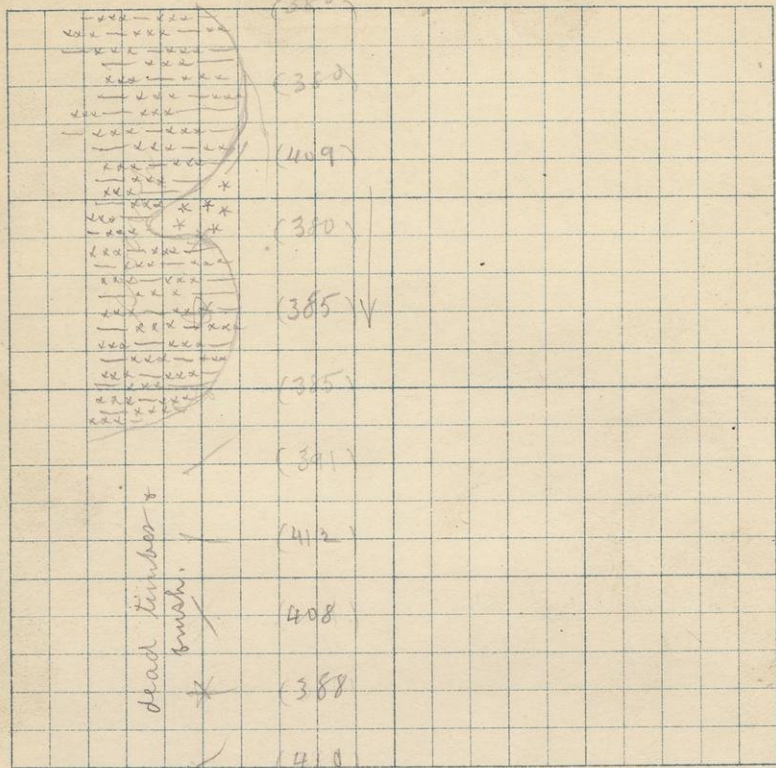 (380)
(409)
(380)
(385)
(385)
(391)
(412)
408
(388
(410
dead timber &
brush.